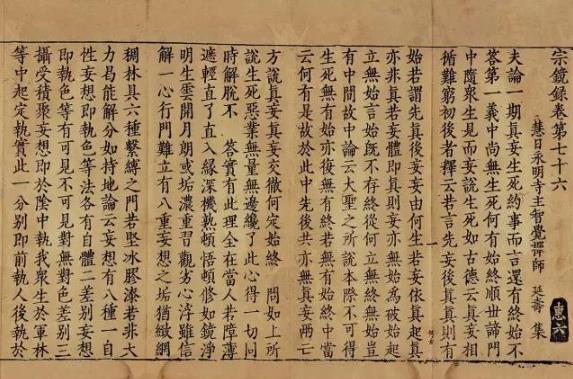 宗鏡錄卷第七十六
慧日永明寺主智覺禪師 延壽 集
夫論一期真妄生死約事而言還有終始不
答第一義中尚無生死何有始終順世諦門
中隨衆生見而妄說生死如古德云真妄相
循難窮初後者釋云若言先妄後真真則有
始若謂先真後妄妄由何生若妄依真起真
亦非真若妄體即真則妄亦無始為破始起
立無始言始既不存終從何立無終無始豈
有中間故中論云大聖之所說本際不可得
生死無有始亦復無有終若無有始終中當
云何有是故於此中先後共亦無真妄兩亡
方說真妄真妄交徹何定始終 問如上所
說生死惡業無量無邊纔了此心得一切同
時解脫不 答實有此理全在當人若障薄
遮輕直了直入緣深機熟頓悟頓修如鏡淨
明生雲開月朗或垢濃重習觀劣心浮雖信
解一心行門難立有八重妄想之垢猶緻網
稠林具六種繫縛之門若堅冰膠漆若非大
力曷能解分如持地論云妄想有八種一自
性妄想即執色等法各有自體二差別妄想
即執色等有可見不可見對無對色差別三
攝受積聚妄想即於陰中執我衆生於軍林
等中起定執實此一分別即前執人後執於
惠六